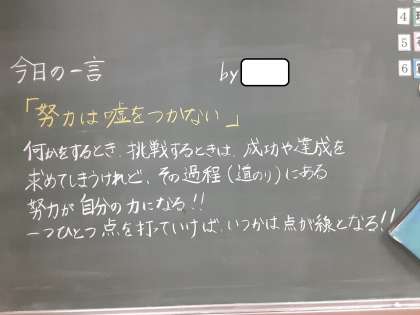 今日の一言 by
「努力は嘘をつかない」
何かをするとき、挑戦するときは、成功や達成を
求めてしまうけれど、その過程(道のり)にある
努力が自分の力になる!!
一つひとつ点を打っていけば、いつかは点が線となる!!
4
5
6